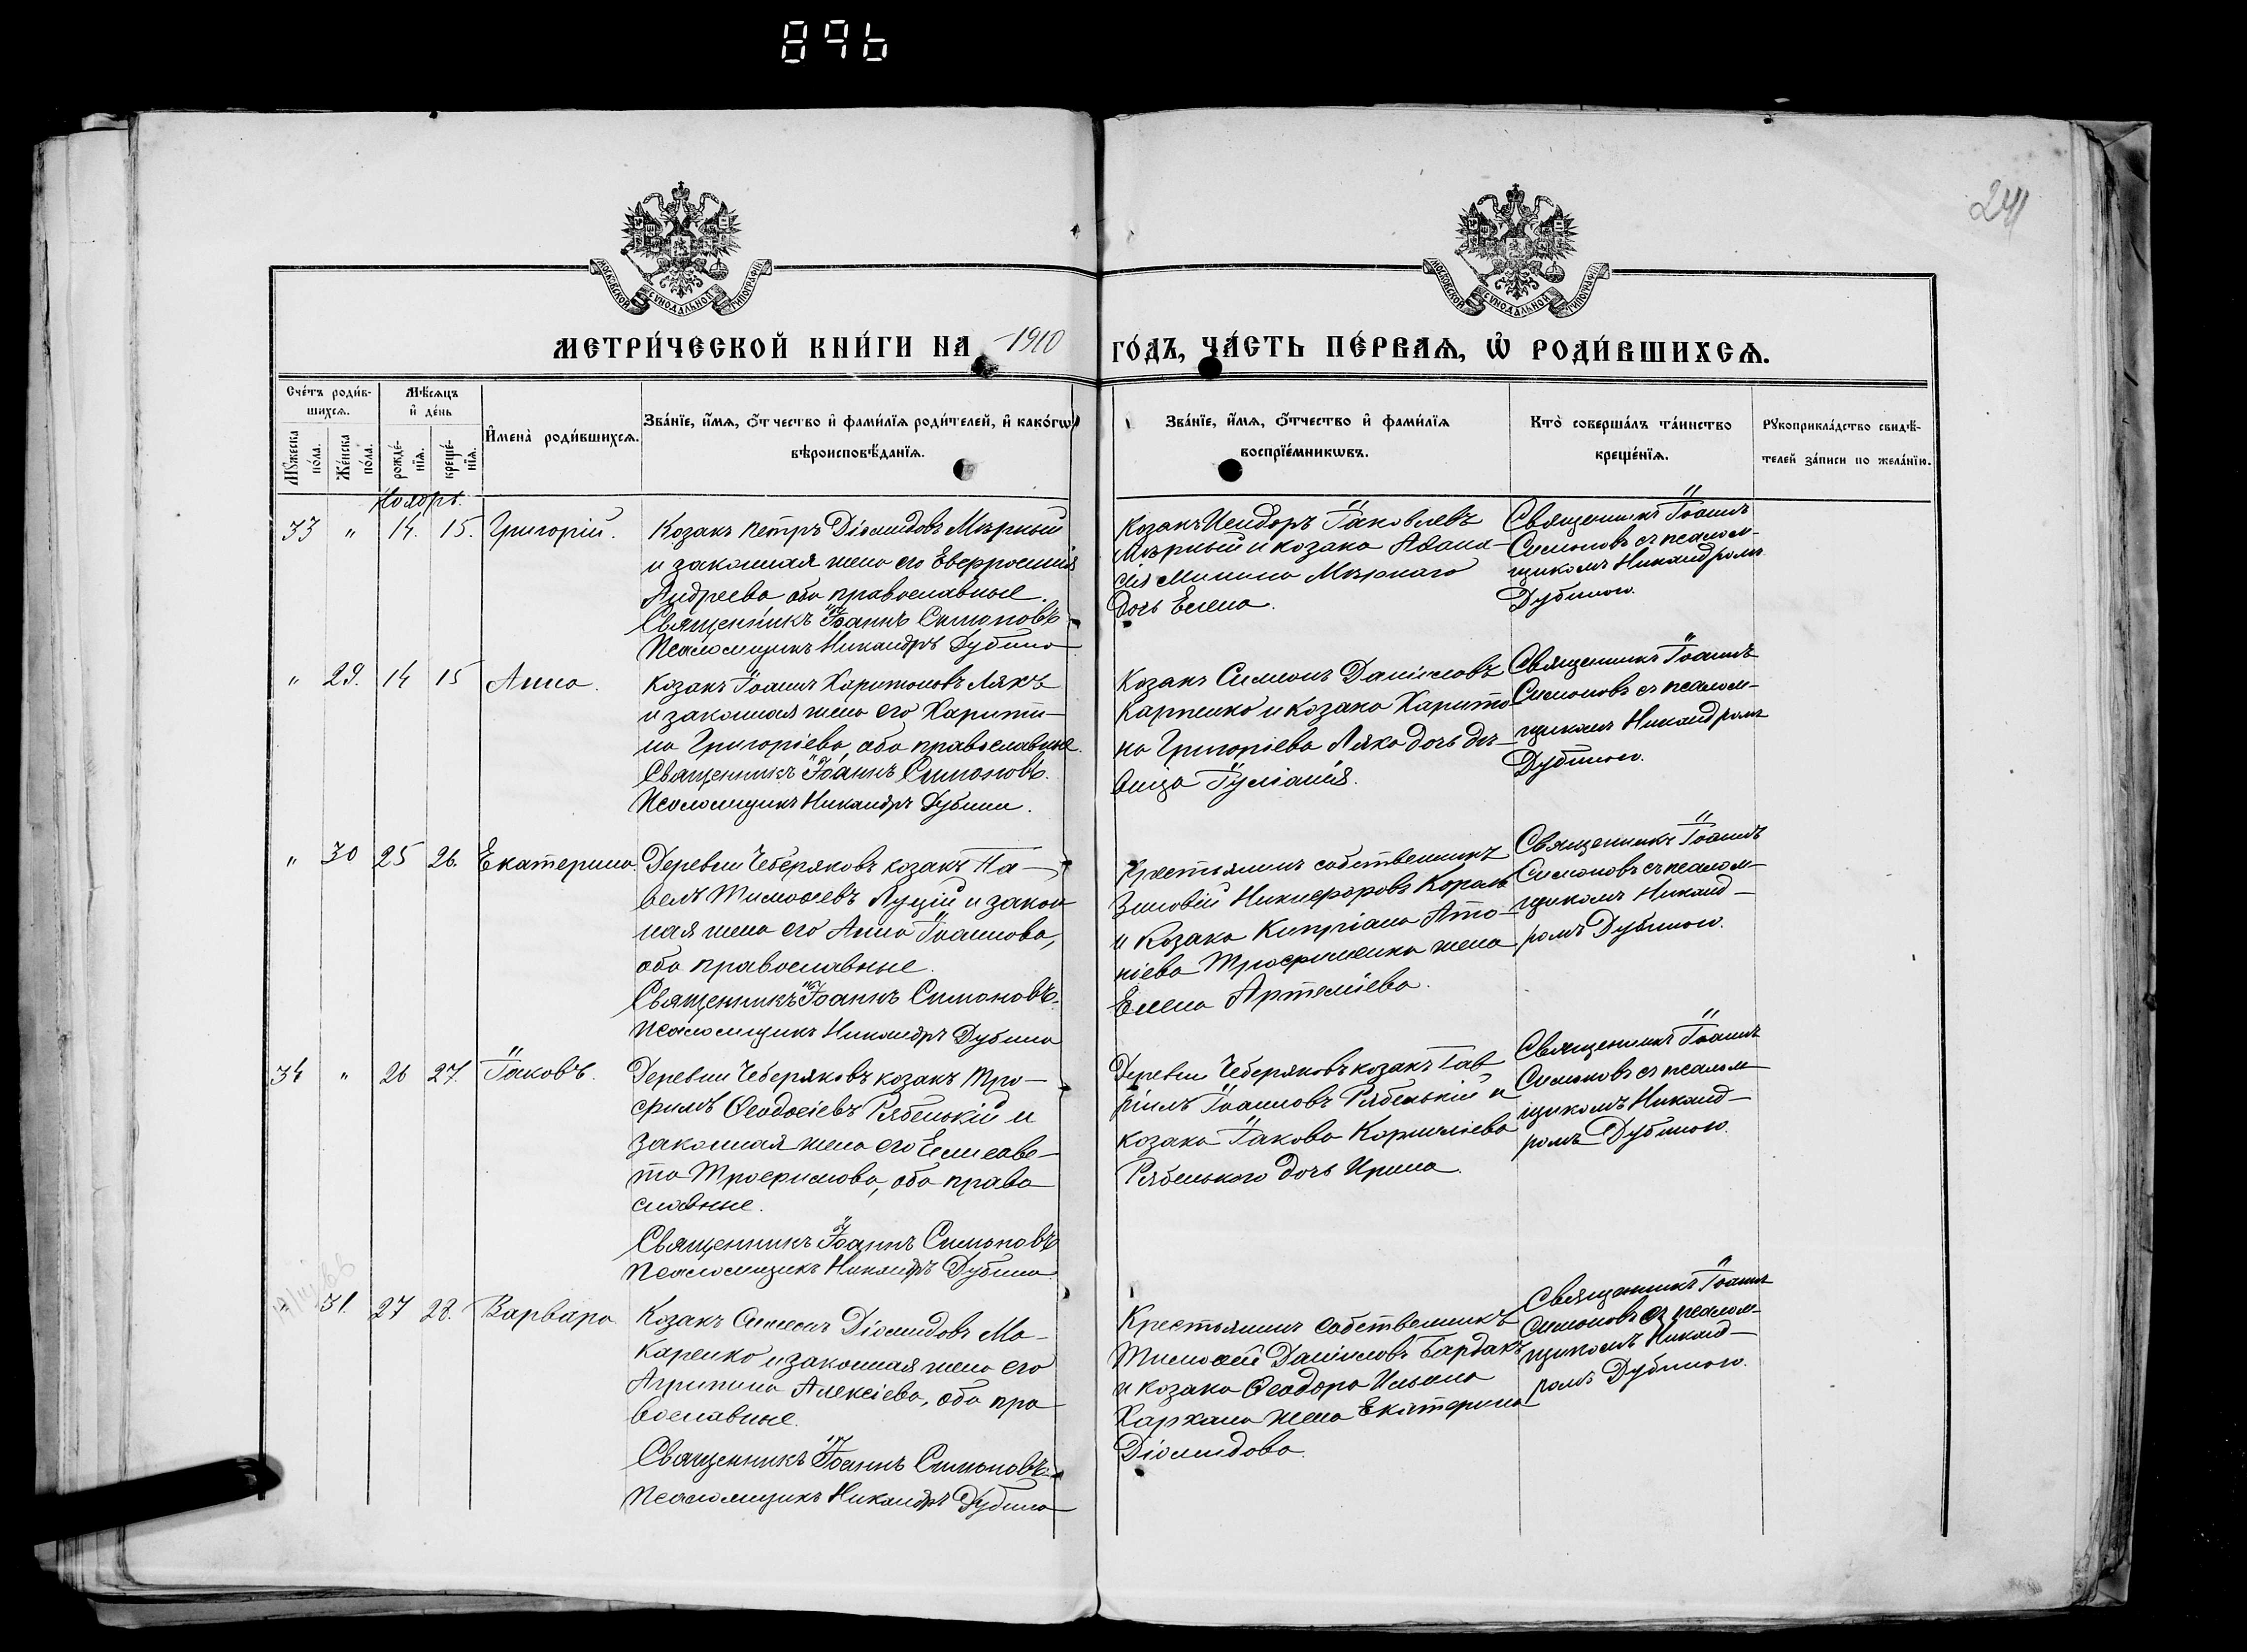 896
241
МОСКОВСКОЙ СУНОДАЛЬНОЙ ТИПОГРАФІИ
МОСКОВСКОЙ СУНОДАЛЬНОЙ ТИПОГРАФІИ
МЕТРИ́ЧЕСКОЙ КНИ́ГИ НА 1910 ГО́ДЪ, ЧА́СТЬ ПЕ́РВАѦ, Ѽ РОДИ́ВШИХСѦ.
Сче́тъ роди́в-
шихсѧ.
Мѣ́сѧцъ
и҆ де́нь
Мꙋ́жеска по́ла.
Же́нска по́ла.
рожде́-нїѧ.
креще́-нїѧ.
И҆мена̀ роди́вшихсѧ.
Зва́нїе, и҆́мѧ, ѻ҆́тчество и҆ фами́лїѧ роди́телей, и҆ како́гѡ
вѣроисповѣ́данїѧ.
Зва́нїе, и҆́мѧ, ѻ҆́тчество и҆ фами́лїѧ
воспрїе́мникѡвъ.
Кто̀ соверша́лъ та́инство
креще́нїѧ.
Рꙋкоприкла́дство свидѣ́-
телей за́писи по жела́нїю.
Ноябрь.
33 " 14. 15. Григорій.
Козакъ Петръ Діомидовъ Мѣрный
и законная жена его Евфросинія
Андреева оба православные.
Священникъ Іоаннъ Симоновъ
Псаломщикъ Никандръ Дубина
Козакъ Исидоръ Іаковлевъ
Мѣрный и козака Афана-
сія Минина Мѣрнаго
дочь Елена.
Священникъ Іоаннъ
Симоновъ съ псалом-
щикомъ Никандромъ
Дубиною.
" 29. 14 15 Анна.
Козакъ Іоаннъ Харитоновъ Лякъ
и законная жена его Харити-
на Григоріева, оба православные.
Священникъ Іоаннъ Симоновъ.
Псаломщикъ Никандръ Дубина.
Козакъ Симеонъ Даніиловъ
Карпенко и козака Харито
на Григоріева Ляка дочь дѣ-
вица Іуліанія.
Священникъ Іоаннъ
Симоновъ съ псалом-
щикомъ Никандромъ
Дубиною.
" 30 25 26. Екатерина.
Деревни Чеберяковъ козакъ Па-
велъ Тимофеевъ Луцій и закон
ная жена его Анна Іоаннова,
оба православные.
Священникъ Іоаннъ Симоновъ.
Псаломщикъ Никандръ Дубина
Крестьянинъ собственникъ
Зиновій Никифоровъ Король
и Козака Кипріана Ато-
ніева Трофименка жена
Елена Артеміева.
Священникъ Іоаннъ
Симоновъ съ псалом-
щикомъ Никанд-
ромъ Дубиною.
34 " 26 27. Іаковъ.
Деревни Чеберяковъ козакъ Тро-
фимъ Ѳеодосіевъ Рябенькій и
законная жена его Елисаве-
та Трофимова, оба право
славные.
Священникъ Іоаннъ Симоновъ
Псаломщикъ Никандръ Дубина
Деревни Чеберяковъ козакъ Гав
ріилъ Іоанновъ Рябенькій и
козака Іакова Корниліева
Рябенького дочь Ирина.
Священникъ Іоаннъ
Симоновъ съ псалом
щикомъ Никанд-
ромъ Дубиною.
" 31. 27 28. Варвара
Козакъ Симеонъ Діомидовъ Ма-
каренко и законная жена его
Агрипина Алексіева, оба пра
вославные.
Священникъ Іоаннъ Симоновъ.
Псаломщикъ Никандръ Дубина
Крестьянинъ собственникъ
Тимофей Даніиловъ Бардакъ
и козака Ѳеодора Ильина
Кархана жена Екатерина
Діомидова.
Священникъ Іоаннъ
Симоновъ съ псалом-
щикомъ Никанд-
ромъ Дубиною.